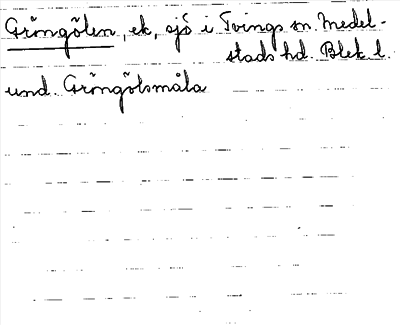 Gröngölen, ek, sjö i Tvings sn. Medel-
stads hd. Blek l.
und. Gröngölsmåla